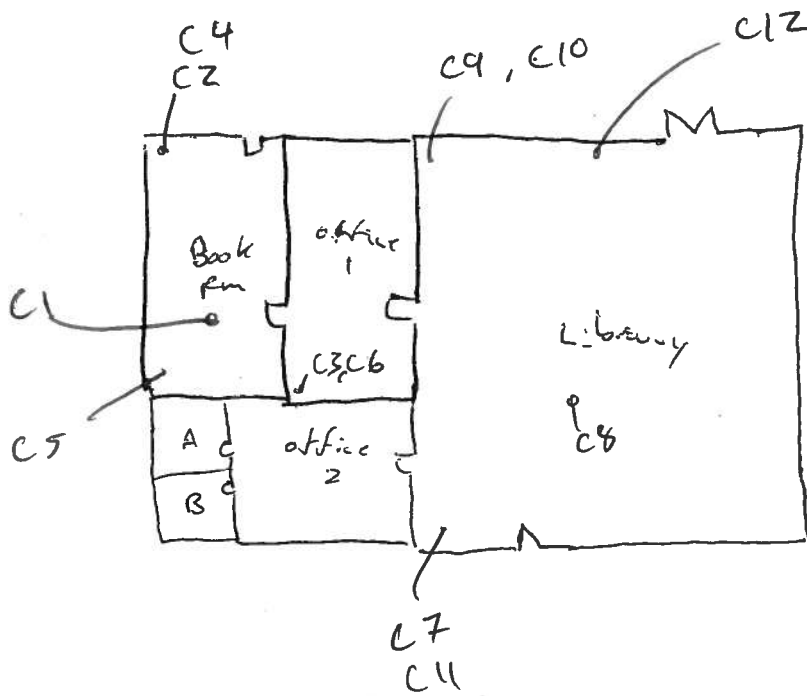 C4
C2
C9, C10
C12
Book
Rm
office
1
C1
C3, C6
Library
C8
C5
A
office
2
B
C7
C11